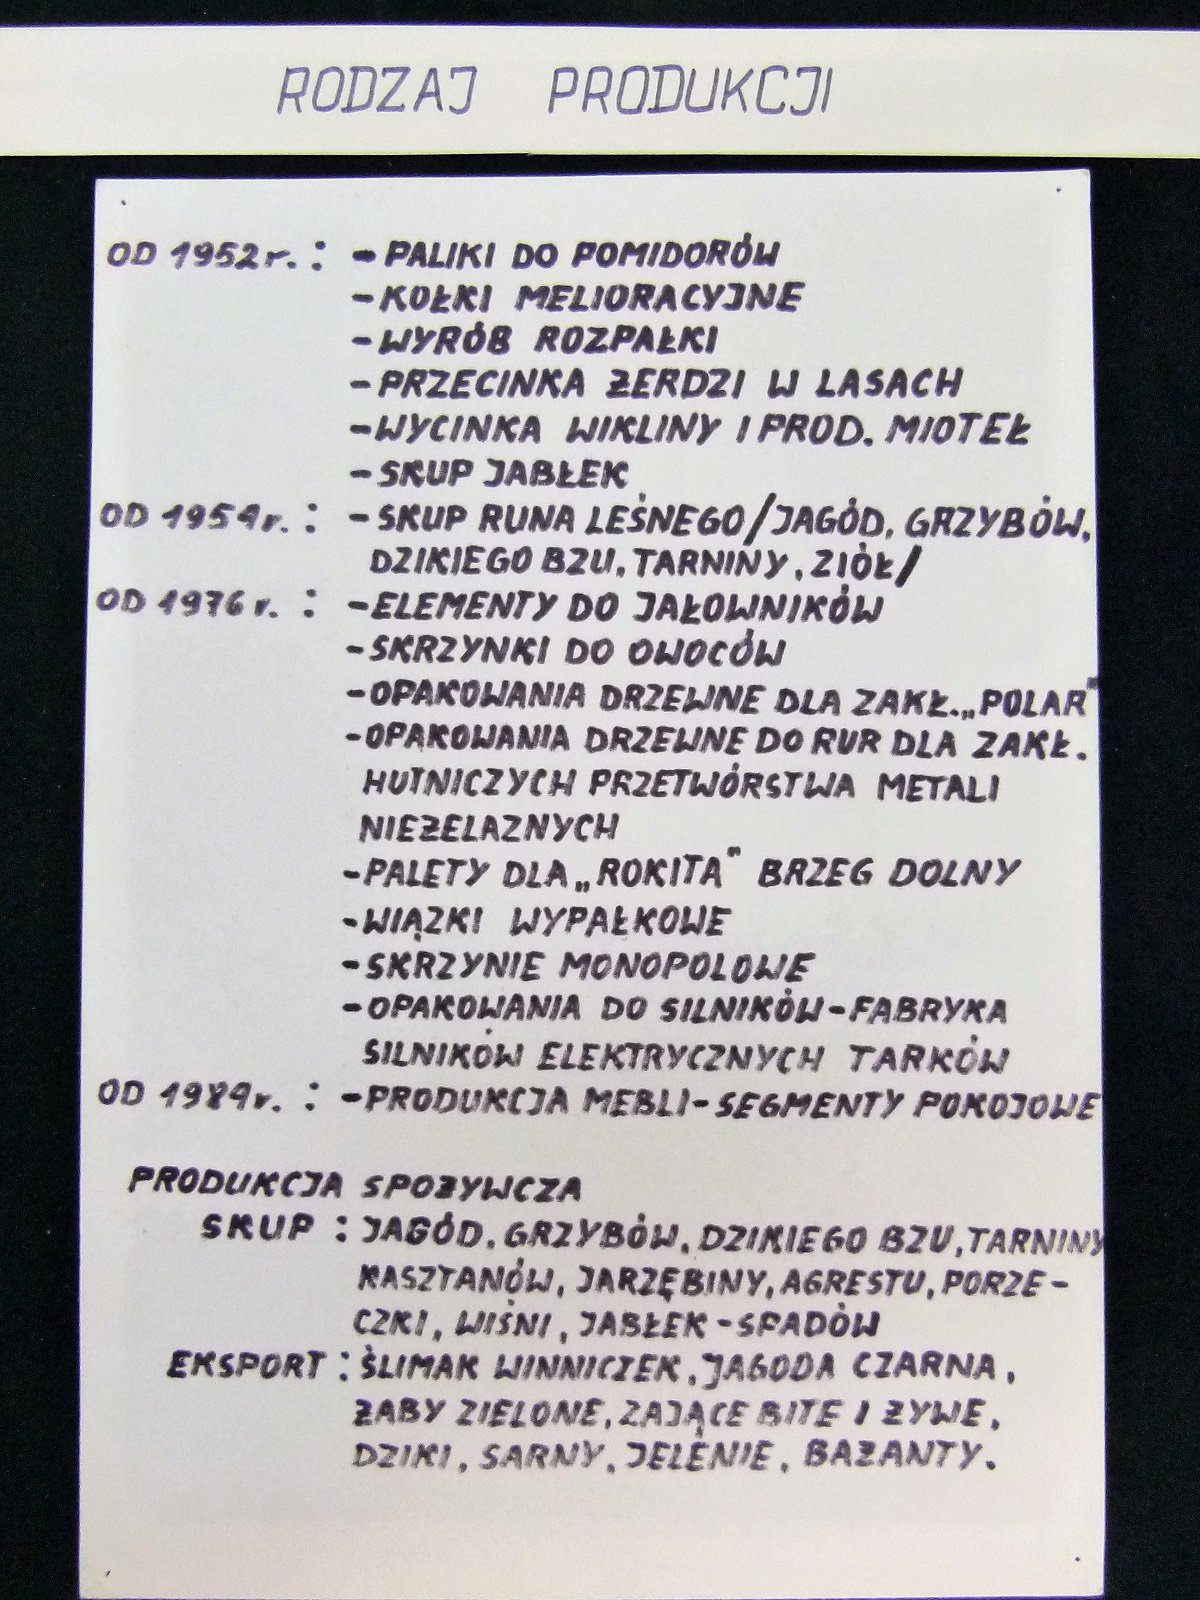 RODZAJ PRODUKCJI
OD 1952 r. : - PALIKI DO POMIDORÓW
- KOŁKI MELIORACYJNE
- WYRÓB ROZPAŁKI
- PRZECINKA ŻERDZI W LASACH
- WYCINKA WIKLINY I PROD. MIOTEŁ
- SKUP JABŁEK
OD 1954 r. : - SKUP RUNA LEŚNEGO/JAGÓD, GRZYBÓW,
DZIKIEGO BZU, TARNINY, ZIÓŁ/
OD 1976 r. : - ELEMENTY DO JAŁOWNIKÓW
- SKRZYNKI DO OWOCÓW
- OPAKOWANIA DRZEWNE DLA ZAKŁ. „POLAR"
- OPAKOWANIA DRZEWNE DO RUR DLA ZAKŁ.
HUTNICZYCH PRZETWÓRSTWA METALI
NIEŻELAZNYCH
- PALETY DLA „ROKITA" BRZEG DOLNY
- WIĄZKI WYPAŁKOWE
- SKRZYNIE MONOPOLOWE
- OPAKOWANIA DO SILNIKÓW - FABRYKA
SILNIKÓW ELEKTRYCZNYCH TARKÓW
OD 1984 r. : - PRODUKCJA MEBLI - SEGMENTY POKOJOWE
PRODUKCJA SPOŻYWCZA
SKUP : JAGÓD, GRZYBÓW, DZIKIEGO BZU, TARNINY
KASZTANÓW, JARZĘBINY, AGRESTU, PORZE-
CZKI, WIŚNI, JABŁEK - SPADÓW
EKSPORT : ŚLIMAK WINNICZEK, JAGODA CZARNA,
ŻABY ZIELONE, ZAJĄCE BITE I ŻYWE,
DZIKI, SARNY, JELENIE, BAŻANTY.